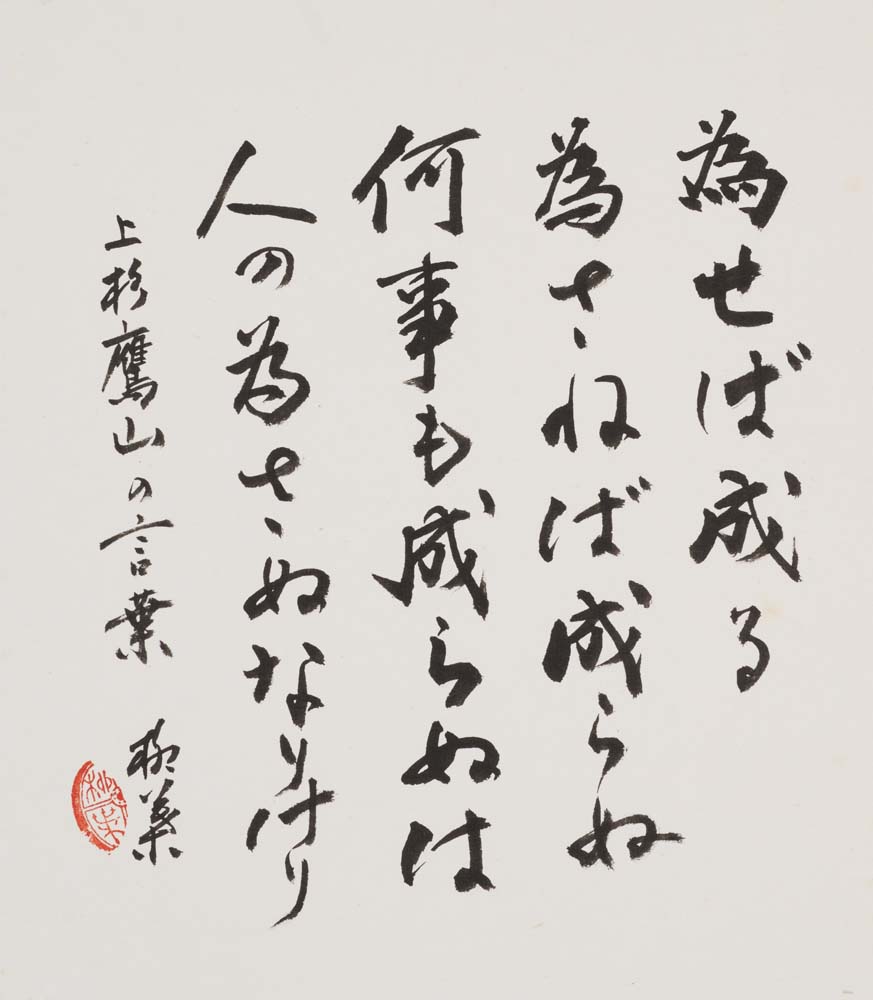 為せば成る
為さねば成らぬ
何事も成らぬは
人の為さぬなりけり
上杉鷹山の言葉
柳葉